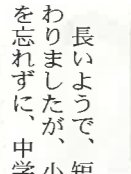 長いようで、短
わりましたが、小
を忘れずに、中学